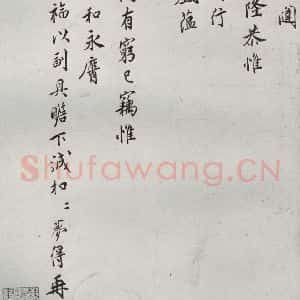 閫
隆恭惟
行
蕴
有窮已竊惟
和永膺
福以到具瞻下诚扣〻夢得再
Shufawang.CN